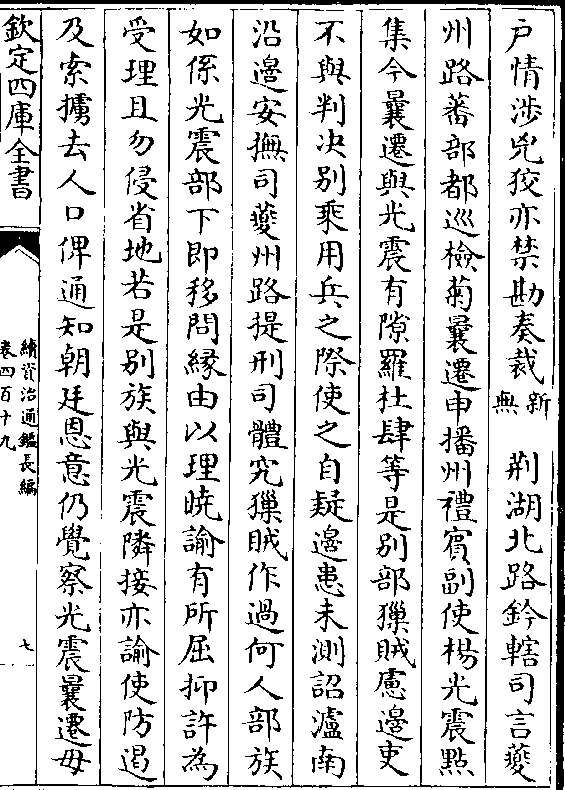 户情渉兇狡亦禁勘奏裁新無　荆湖北路鈐轄司言夔
州路蕃部都巡檢菊曩遷申播州禮賓副使楊光震㸃
集今曩遷與光震有隙羅杜肆等是别部獠賊慮邊吏
不與判決别乘用兵之際使之自疑邊患未測詔瀘南
沿邊安撫司夔州路提刑司體究獠賊作過何人部族
如係光震部下即移問縁由以理曉諭有所屈抑許為
受理且勿侵省地若是别族與光震隣接亦諭使防遏
及索擄去人口俾通知朝廷恩意仍覺察光震曩遷毋
欽定四庫全書
續資治通鑑長編
卷四百十九
七